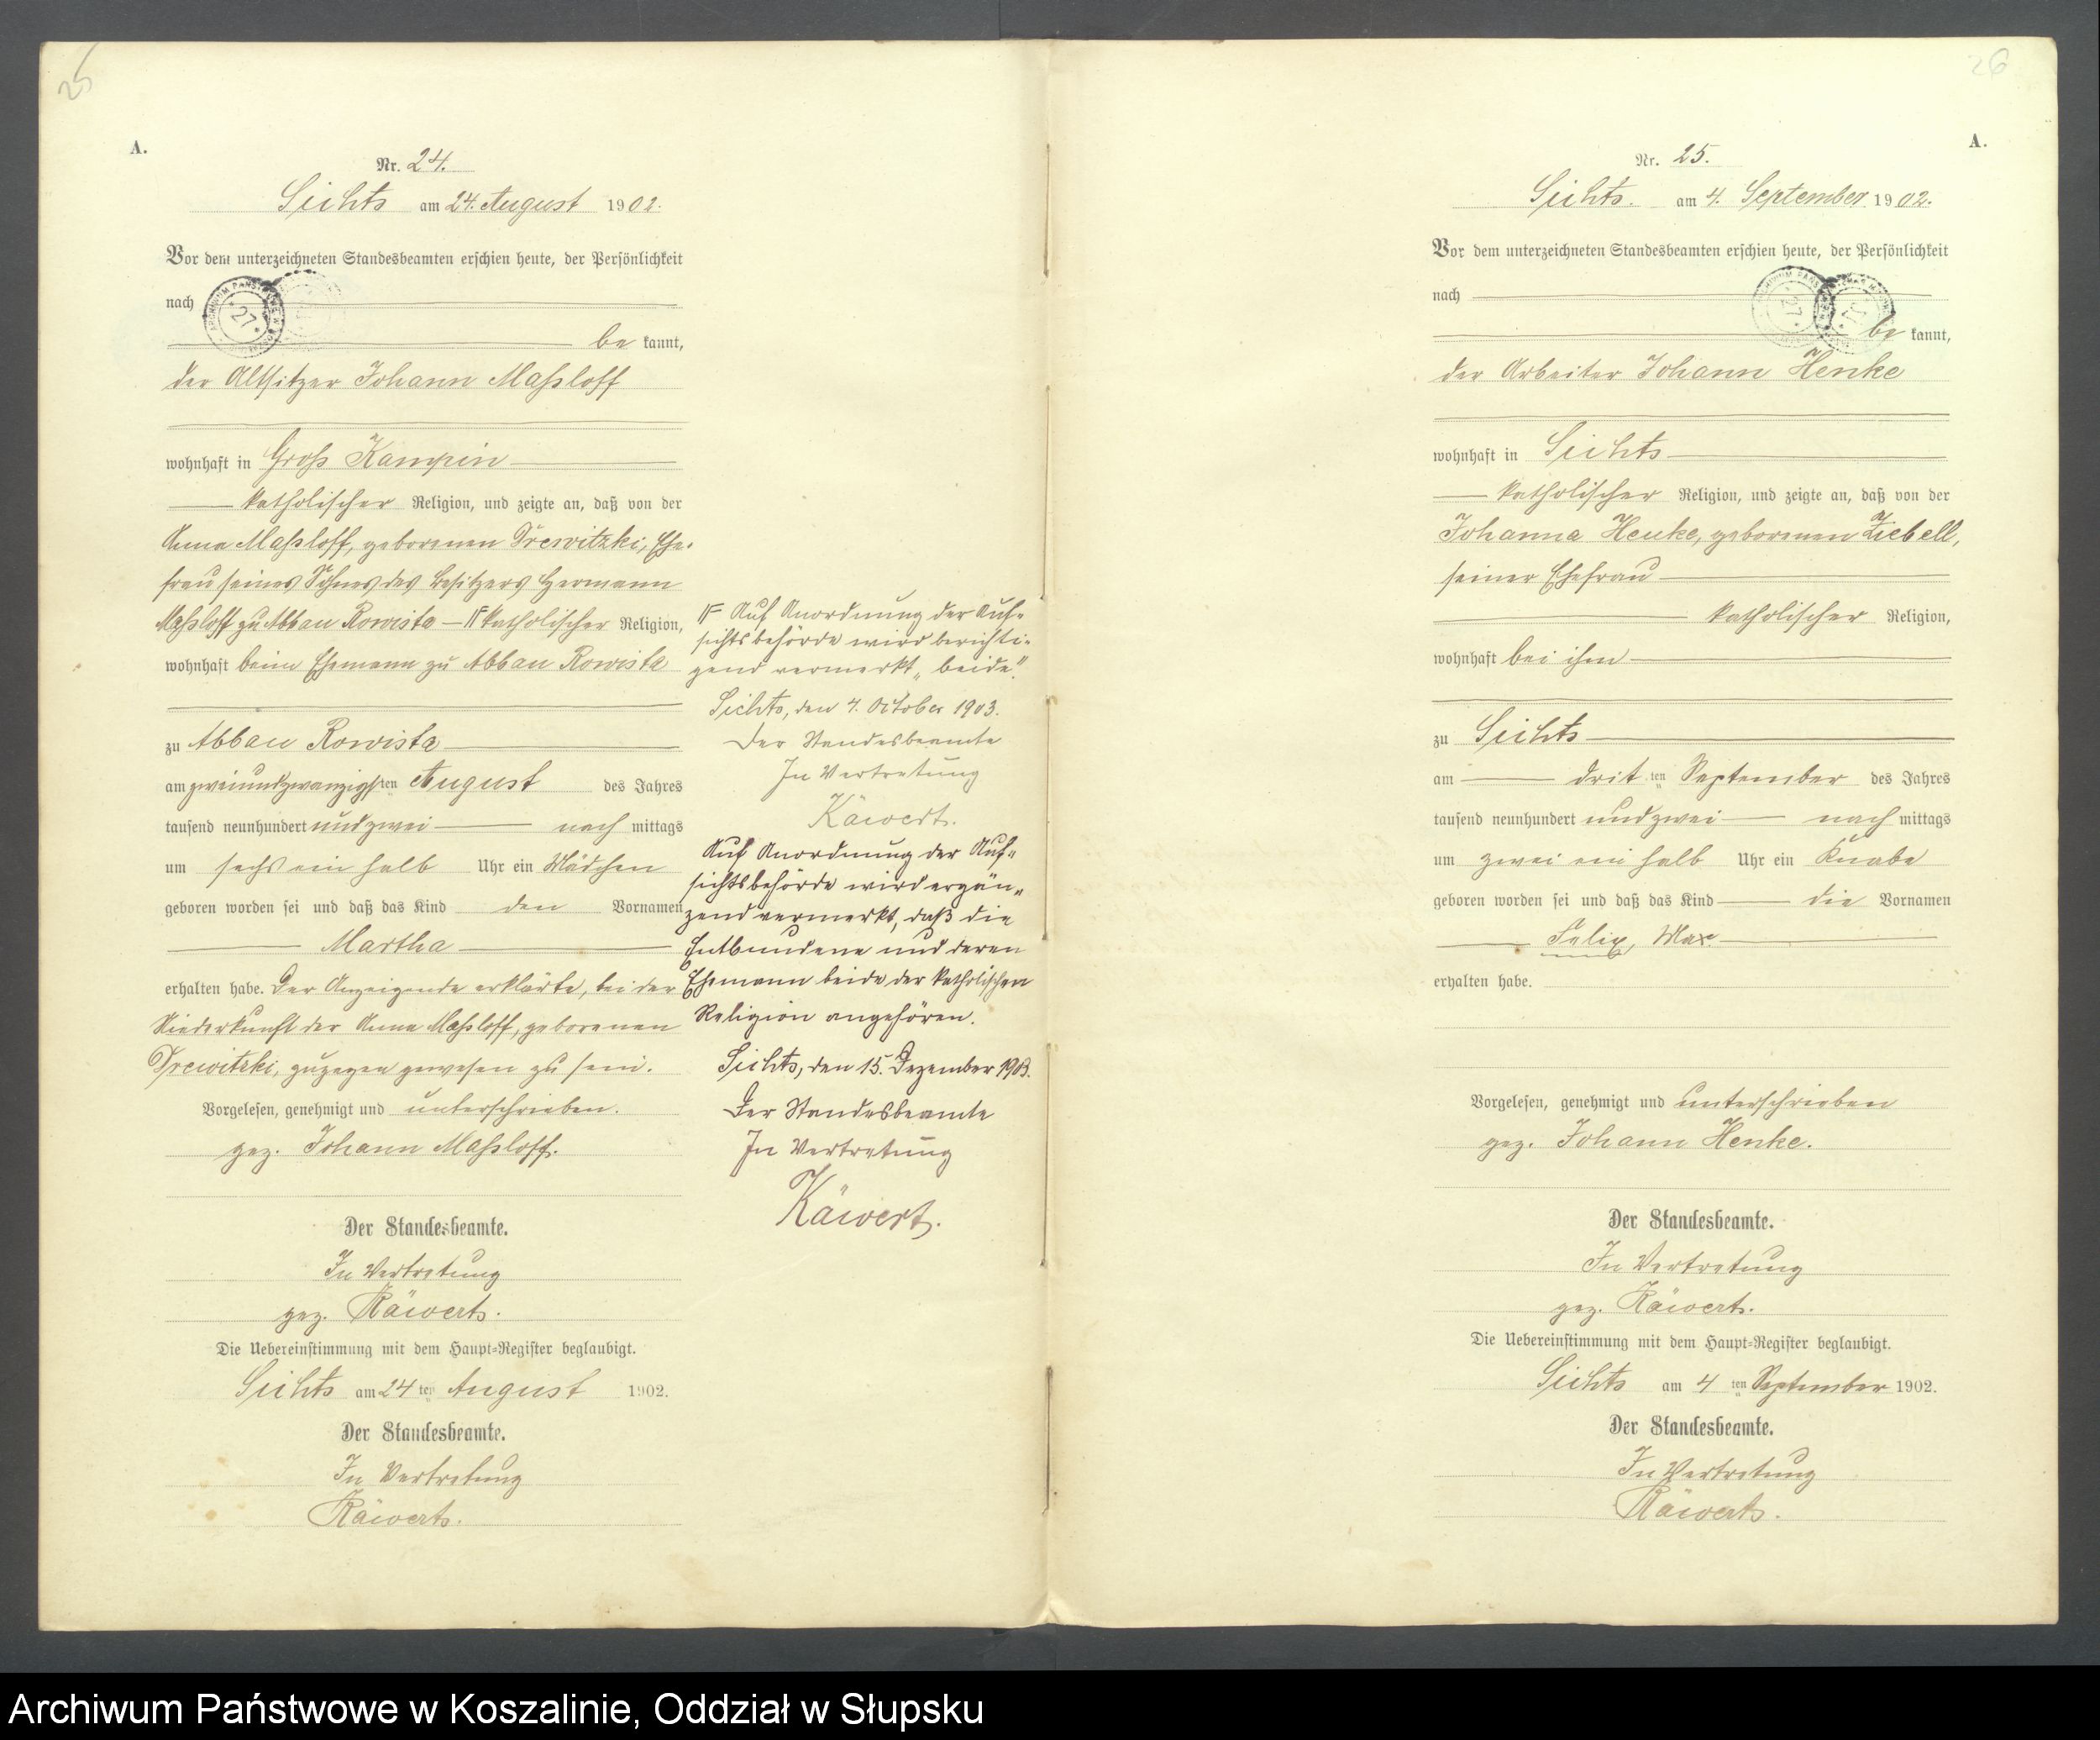 25
A.
Nr. 24.
Sichts am 24. August 1902.
Vor dem unterzeichneten Standesbeamten erschien heute, der Persönlichkeit
nach
be kannt,
der Altsitzer Johann Maßloff
wohnhaft in Groß Kampin
katholischer Religion, und zeigte an, daß von der
Anna Maßloff, geborenen Drewitzki, Ehe-
frau seines Sohnes des Besitzers Hermann
Maßloff zu Abbau Rowista — katholischer Religion,
wohnhaft beim Ehemann zu Abbau Rowista
zu Abbau Rowista
am zweiundzwanzigsten August des Jahres
tausend neunhundert und zwei nach mittags
um sechs ein halb Uhr ein Mädchen
geboren worden sei und daß das Kind den Vornamen
Martha
erhalten habe. Der Anzeigende erklärte, bei der
Niederkunft der Anna Maßloff, geborenen
Drewitzki, zugegen gewesen zu sein.
Vorgelesen, genehmigt und unterschrieben.
gez. Johann Maßloff.
Der Standesbeamte.
In Vertretung
gez. Käwert.
Die Uebereinstimmung mit dem Haupt-Register beglaubigt.
Sichts am 24 ten August 1902.
Der Standesbeamte.
In Vertretung
Käwert.
Auf Anordnung der Auf-
sichtsbehörde wird berichti-
gend vermerkt „beide“.
Sichts, den 7. October 1903.
Der Standesbeamte
In Vertretung
Käwert.
Auf Anordnung der Auf-
sichtsbehörde wird ergän-
zend vermerkt, daß die
Entbundene und deren
Ehemann beide der katholischen
Religion angehören.
Sichts, den 15. Dezember 1903.
Der Standesbeamte
In Vertretung
Käwert.
26
A.
Nr. 25.
Sichts. am 4. September 1902.
Vor dem unterzeichneten Standesbeamten erschien heute, der Persönlichkeit
nach
be kannt,
der Arbeiter Johann Henke
wohnhaft in Sichts
katholischer Religion, und zeigte an, daß von der
Johanna Henke, geborenen Ziebell,
seiner Ehefrau
katholischer Religion,
wohnhaft bei ihm
zu Sichts
am drit ten September des Jahres
tausend neunhundert und zwei nach mittags
um zwei ein halb Uhr ein Knabe
geboren worden sei und daß das Kind die Vornamen
Felix, Max
erhalten habe.
Vorgelesen, genehmigt und unterschrieben
gez. Johann Henke.
Der Standesbeamte.
In Vertretung
gez. Käwert.
Die Uebereinstimmung mit dem Haupt-Register beglaubigt.
Sichts am 4 ten September 1902.
Der Standesbeamte.
In Vertretung
Käwert.
Archiwum Państwowe w Koszalinie, Oddział w Słupsku